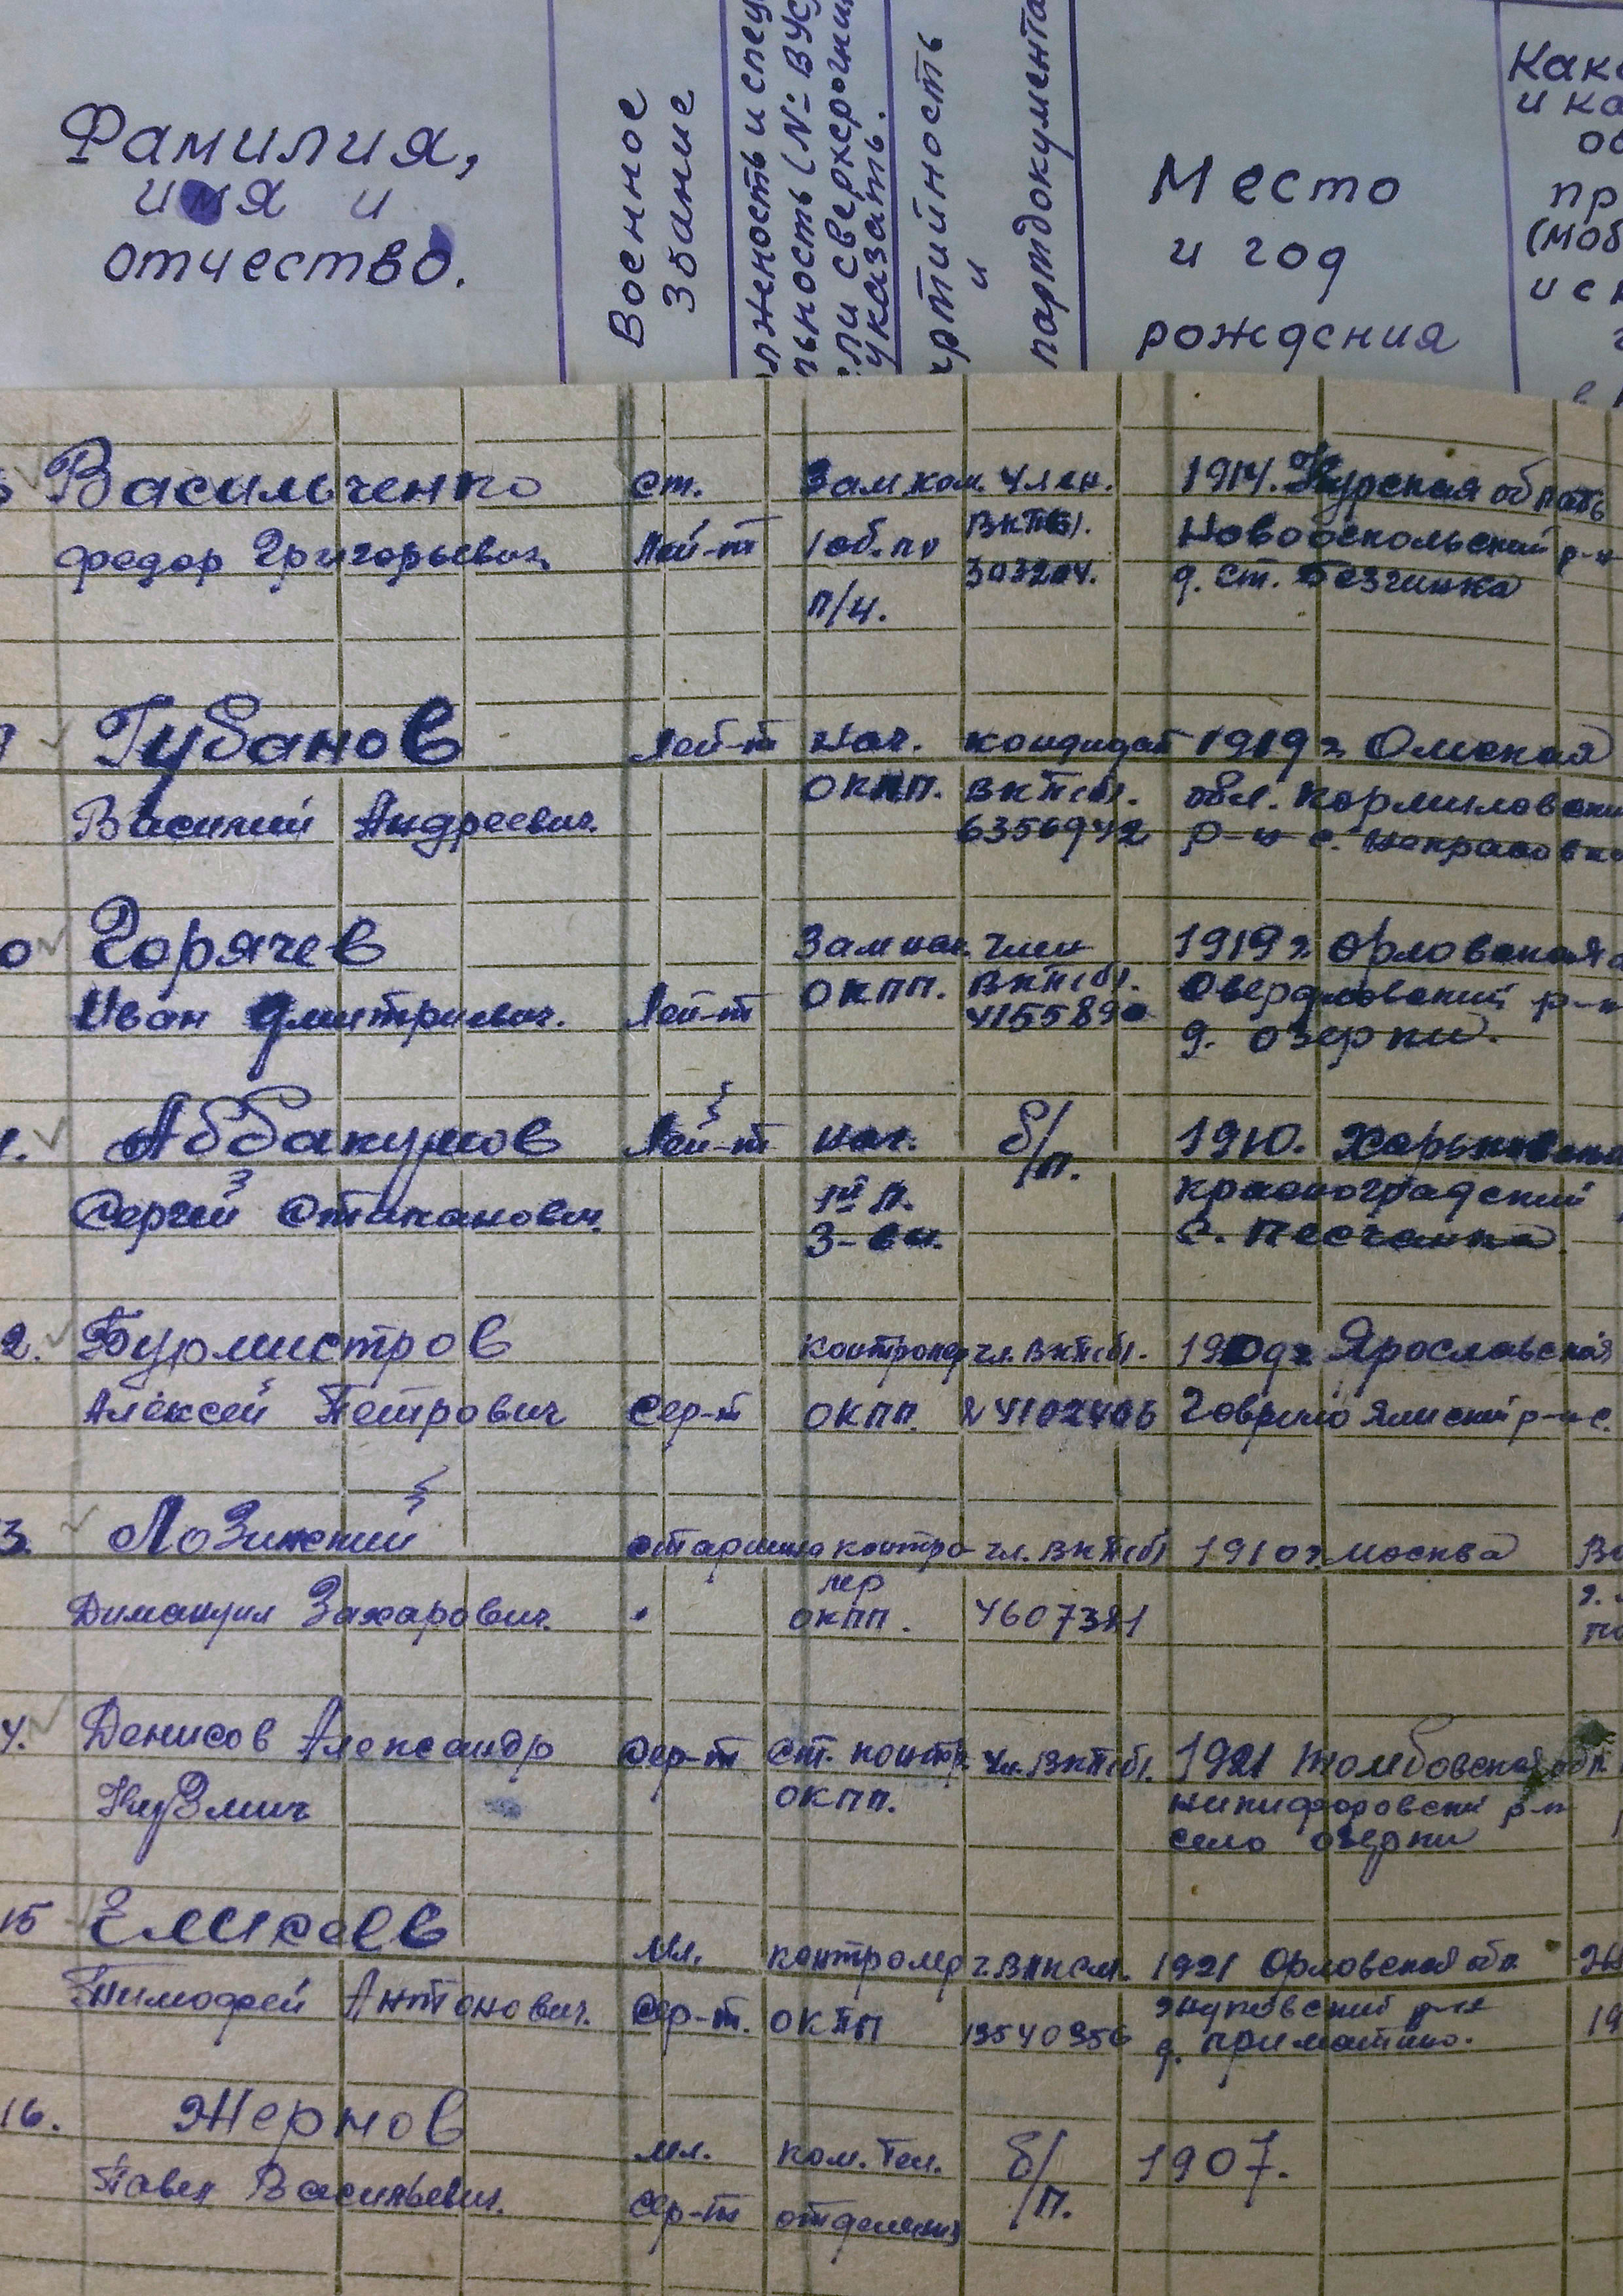 Фамилия,
имя и
отчество.
Военное
звание
лжность и спец
льность (№ ВУС
сли сверхсрочни
указать.
ртийность
и
партдокумента
Место
и год
рождения
Как
и ка
пр
(моб
и с к
Васильченко ст. Зам ком. член. 1914. Курская область
Федор Григорьевич. Лей-т 1 об. по ВКП(б). Новооскольский р-н
303204. д. ст. Безгинка
п/ч.
9 Губанов Лей-т Нач. кандидат 1919 г Омская
ОКПП. ВКП(б). обл. Кормиловский
Василий Андреевич. 6356942 р-н с. Некрасовка
0 Горячев Зам нач. член 1919 г Орловская
Иван Дмитриевич. Лей-т ОКПП. ВКП(б). Свердловский р-н
4155890 д. Озерки.
1. Аббакумов Лей-т Нач. б/п. 1910. Харьковская
Сергей Стаканович. п. Красноградский
3- с. Песчанка
2. Бурмистров контролер чл. ВКП(б). Ярославская
Алексей Петрович Сер-т ОКПП. N 4102406 р-н с.
3. Лозинский старшина контро- чл. ВКП(б) 1910 г Москва
лер
Захарович. ОКПП. 4607321
4. Денисов Александр Сер-т Ст. контр. Чл. ВКП(б). 1921 Томбовская обл.
Кузмич ОКПП. Никифоровский р-н
село Озерки
15 Елисеев Мл. контролер ч. ВЛКСМ. 1921 Орловская обл.
Тимофей Антонович. Сер-т. ОКПП 13540356 р-н
д.
16. Жернов Мл. ком. Тел. б/п. 1907.
Павел Васильевич. Сер-т отделения